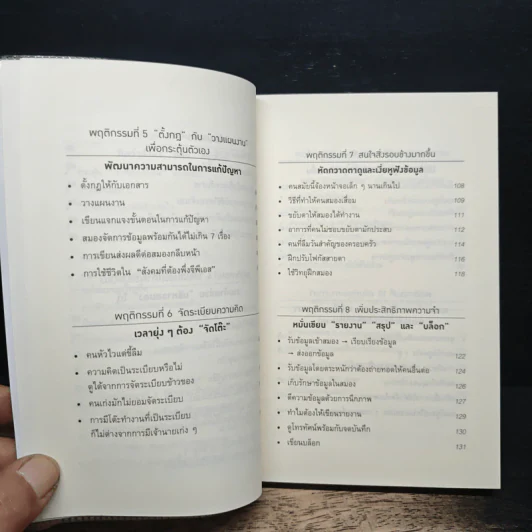 พฤติกรรมที่ 5 "ตั้งกฎ" กับ "วางแผนงาน"
เพื่อกระตุ้นตัวเอง
พัฒนาความสามารถในการแก้ปัญหา
• ตั้งกฎให้กับเอกสาร
• วางแผนงาน
• เขียนแจกแจงขั้นตอนในการแก้ปัญหา
• สมองจัดการข้อมูลพร้อมกันได้ไม่เกิน 7 เรื่อง
• การเขียนส่งผลดีต่อสมองกลีบหน้า
• การใช้ชีวิตใน "สังคมที่ต้องพึ่งจีพีเอส"
พฤติกรรมที่ 6 จัดระเบียบความคิด
เวลายุ่ง ๆ ต้อง "จัดโต๊ะ"
• คนหัวไวแต่ขี้ลืม
• ความคิดเป็นระเบียบหรือไม่
ดูได้จากการจัดระเบียบข้าวของ
• คนเก่งมักไม่ยอมจัดระเบียบ
• การมีโต๊ะทำงานที่เป็นระเบียบ
ก็ไม่ต่างจากการมีเจ้านายเก่ง ๆ
พฤติกรรมที่ 7 สนใจสิ่งรอบข้างมากขึ้น
หัดกวาดตาดูและเงี่ยหูฟังข้อมูล
• คนสมัยนี้จ้องหน้าจอเล็ก ๆ นานเกินไป 108
• วิธีที่ทำให้คนสมองเสื่อม 109
• ขยับตาให้สมองได้ทำงาน 111
• อาการที่คนไม่ชอบขยับตามักประสบ 112
• คนที่ลืมวันสำคัญของครอบครัว 114
• ฝึกปรับโฟกัสสายตา 116
• ใช้วิทยุฝึกสมอง 118
พฤติกรรมที่ 8 เพิ่มประสิทธิภาพความจำ
หมั่นเขียน "รายงาน" "สรุป" และ "บล็อก"
• รับข้อมูลเข้าสมอง → เรียบเรียงข้อมูล
→ ส่งออกข้อมูล 122
• รับข้อมูลโดยตระหนักว่าต้องถ่ายทอดให้คนอื่นต่อ 124
• เก็บรักษาข้อมูลในสมอง 125
• ตีความข้อมูลด้วยการนึกภาพ 127
• ทำไมต้องให้เขียนรายงาน 129
• ดูโทรทัศน์พร้อมกับจดบันทึก 130
• เขียนบล็อก 131